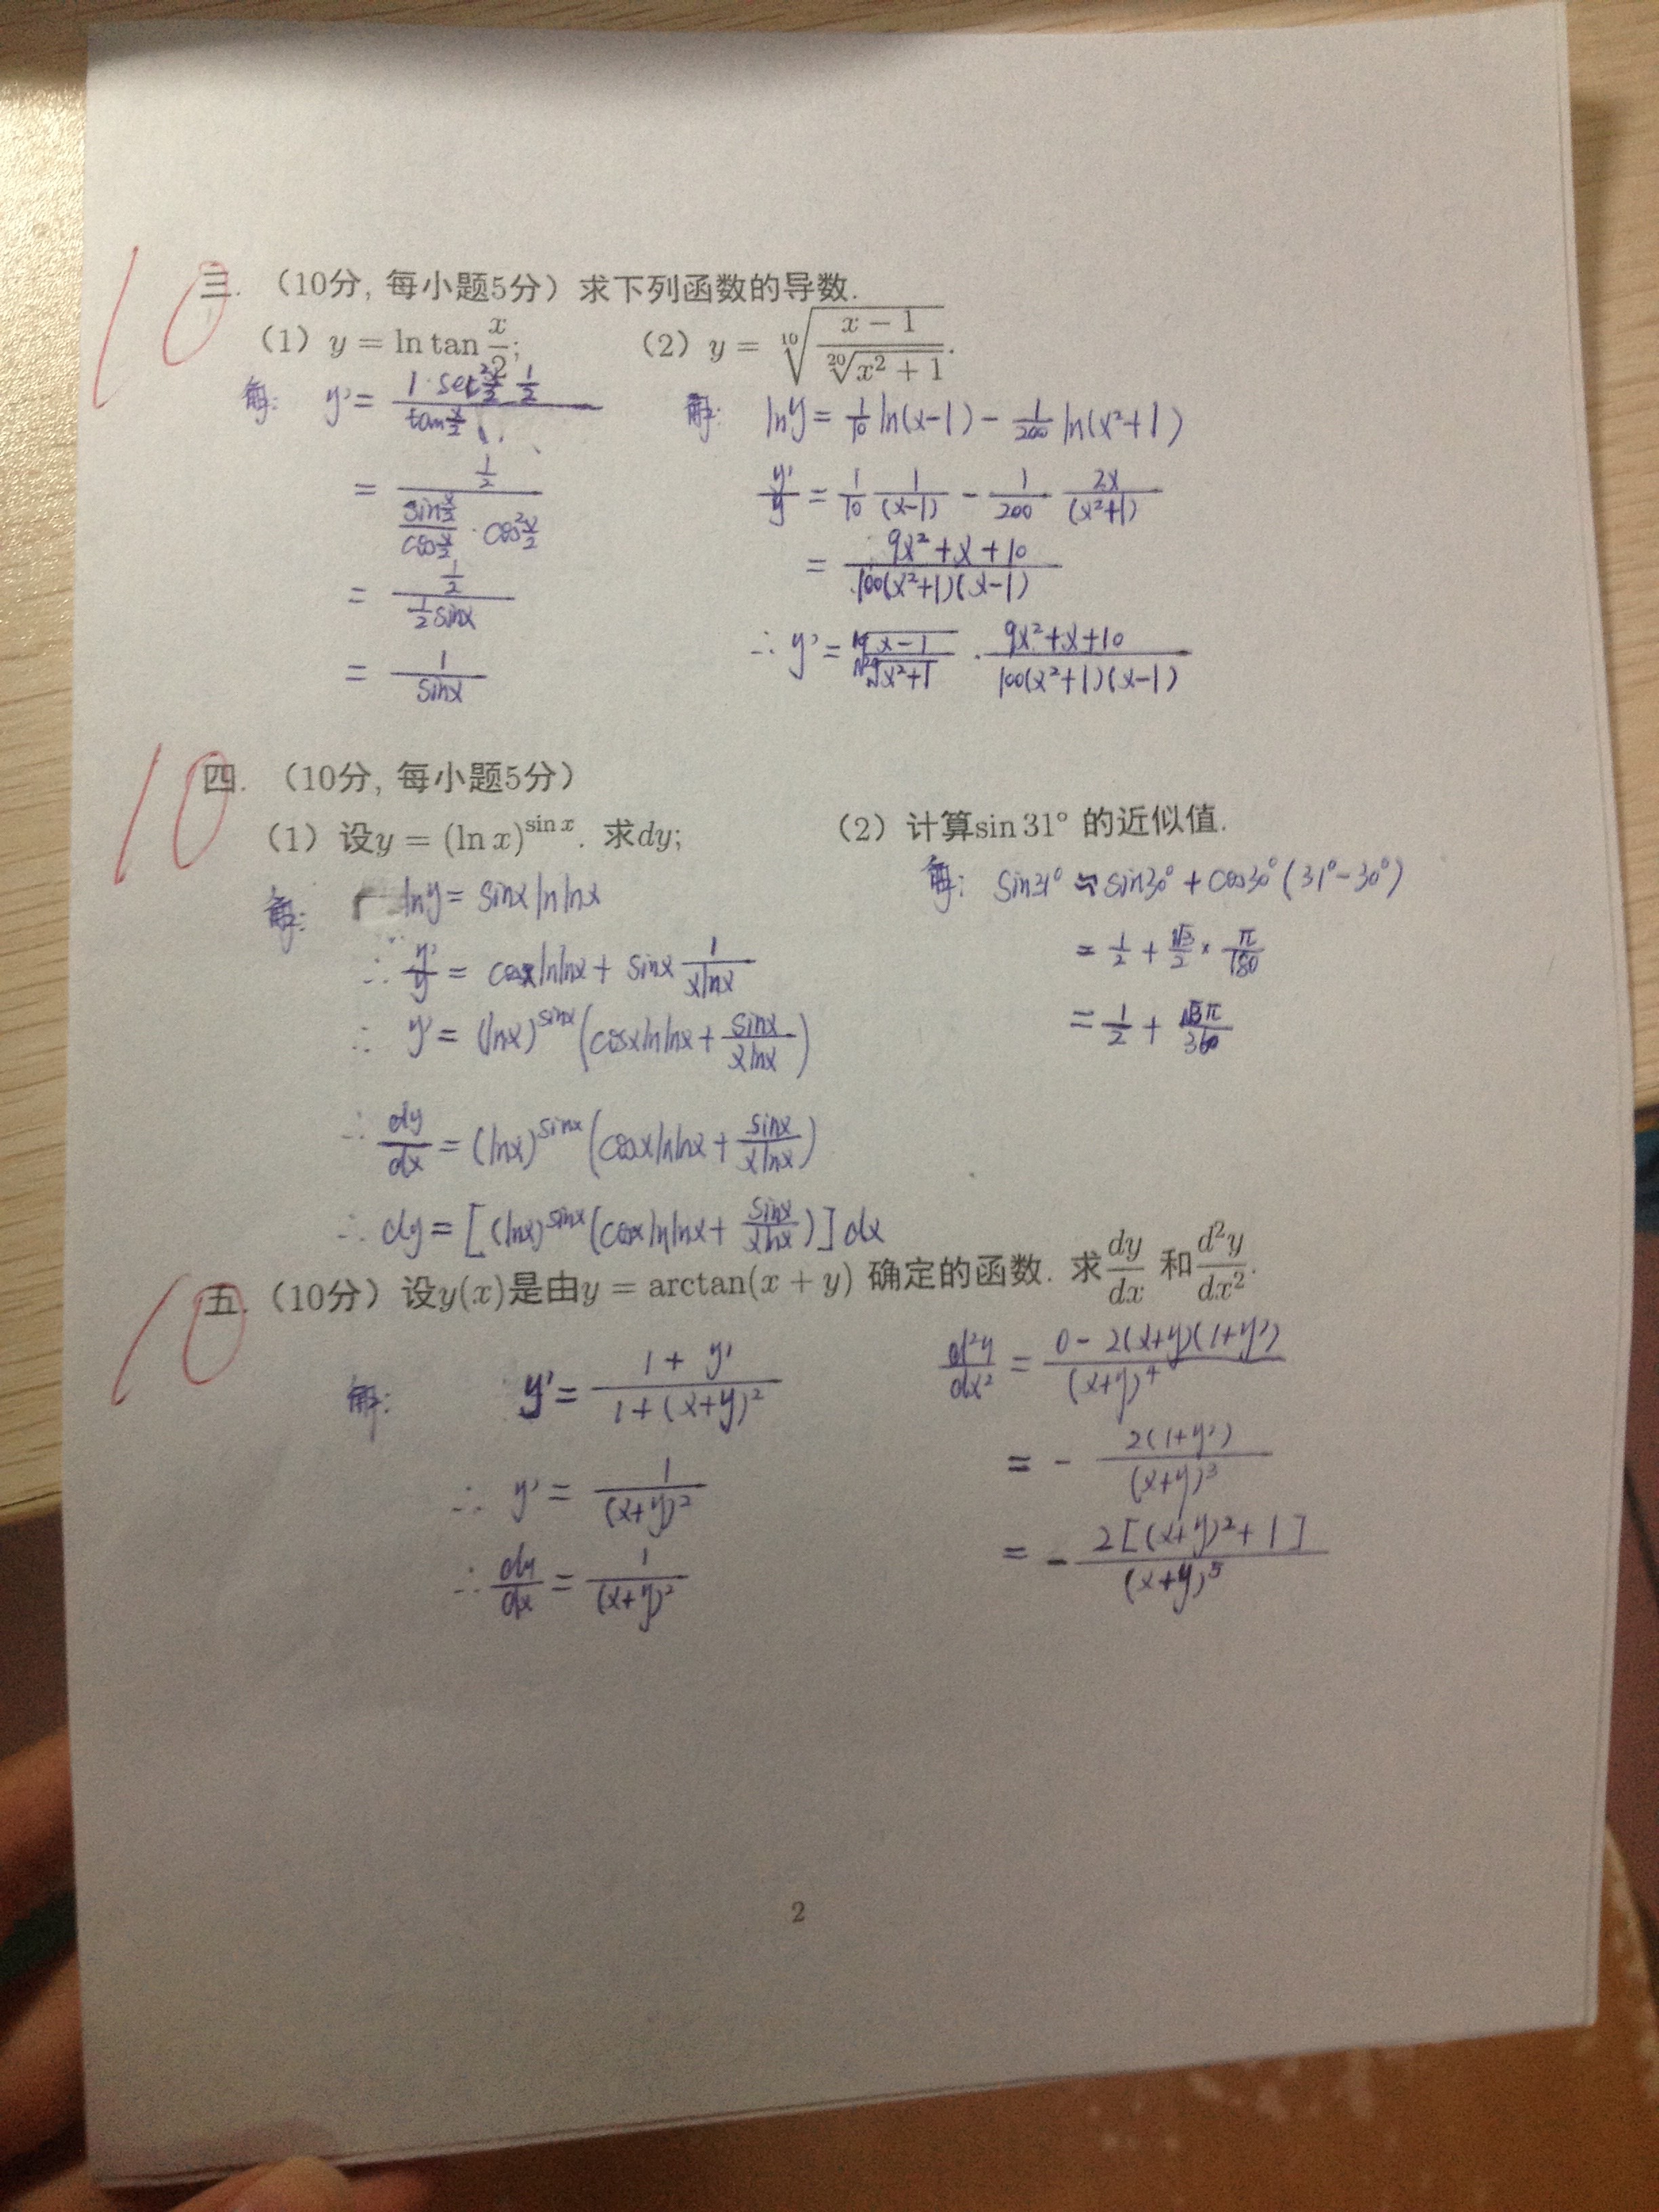 10
三. (10分, 每小题5分) 求下列函数的导数.
(1) y = ln tan x/2; (2) y = \sqrt[10]{\frac{x-1}{\sqrt[20]{x^2+1}}}.
解: y' = \frac{1·sec^2\frac{x}{2}·\frac{1}{2}}{tan\frac{x}{2}}
= \frac{\frac{1}{2}}{\frac{sin\frac{x}{2}}{cos\frac{x}{2}}·cos^2\frac{x}{2}}
= \frac{\frac{1}{2}}{\frac{1}{2}sinx}
= \frac{1}{sinx}
解: lny = \frac{1}{10}ln(x-1) - \frac{1}{200}ln(x^2+1)
\frac{y'}{y} = \frac{1}{10}\frac{1}{(x-1)} - \frac{1}{200}\frac{2x}{(x^2+1)}
= \frac{9x^2+x+10}{100(x^2+1)(x-1)}
∴ y' = \sqrt[10]{\frac{x-1}{\sqrt[20]{x^2+1}}}·\frac{9x^2+x+10}{100(x^2+1)(x-1)}
10
四. (10分, 每小题5分)
(1) 设y = (ln x)^{sin x}. 求dy; (2) 计算sin 31° 的近似值.
解: lny = sinx lnlnx
∴ \frac{y'}{y} = cosx lnlnx + sinx \frac{1}{xlnx}
∴ y' = (lnx)^{sinx}(cosx lnlnx + \frac{sinx}{xlnx})
∴ \frac{dy}{dx} = (lnx)^{sinx}(cosx lnlnx + \frac{sinx}{xlnx})
∴ dy = [(lnx)^{sinx}(cosx lnlnx + \frac{sinx}{xlnx})]dx
解: sin31° ≈ sin30° + cos30°(31°-30°)
= \frac{1}{2} + \frac{\sqrt{3}}{2} × \frac{π}{180}
= \frac{1}{2} + \frac{\sqrt{3}π}{360}
10
五. (10分) 设y(x)是由y = arctan(x + y) 确定的函数. 求\frac{dy}{dx} 和\frac{d^2y}{dx^2}.
解: y' = \frac{1+y'}{1+(x+y)^2}
∴ y' = \frac{1}{(x+y)^2}
∴ \frac{dy}{dx} = \frac{1}{(x+y)^2}
\frac{d^2y}{dx^2} = \frac{0-2(x+y)(1+y')}{(x+y)^4}
= -\frac{2(1+y')}{(x+y)^3}
= -\frac{2[(x+y)^2+1]}{(x+y)^5}
2